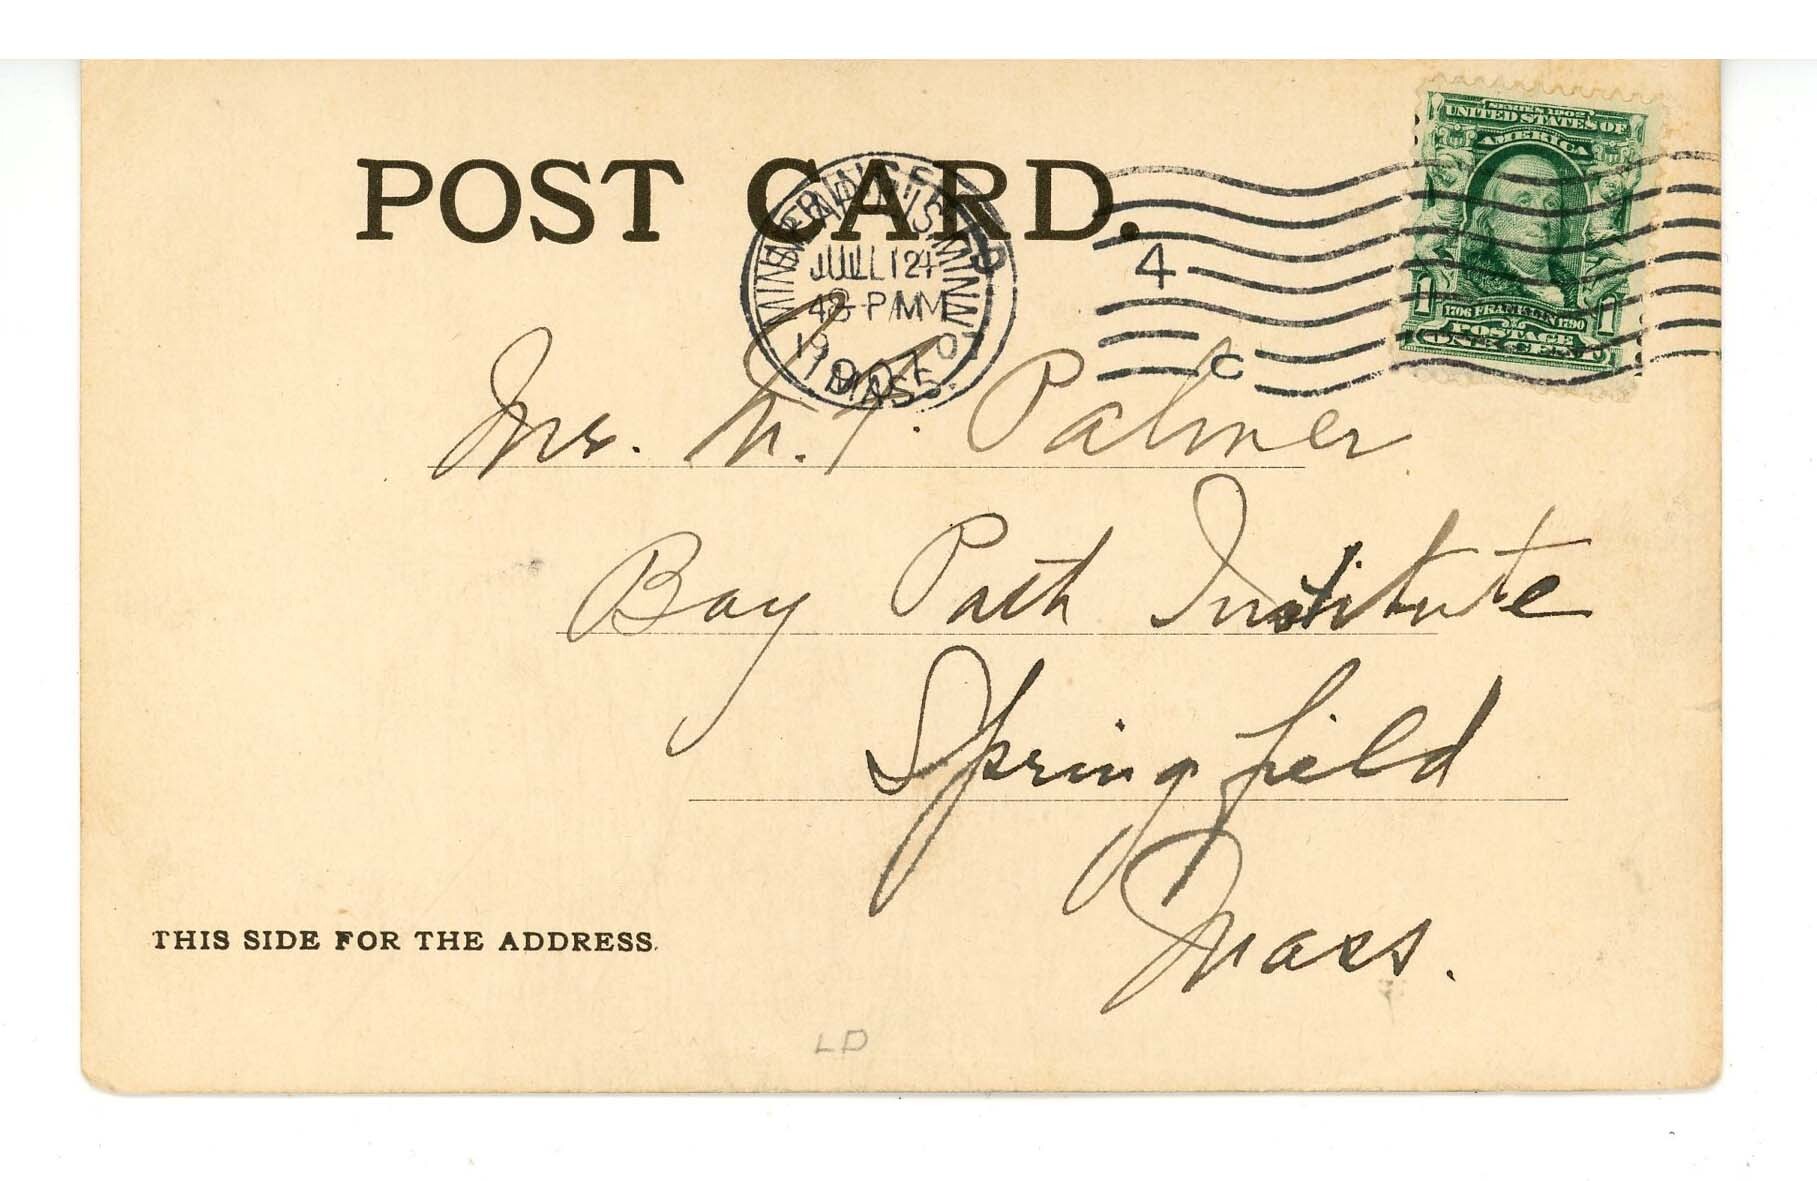 POST CARD.
SERIES 1902
UNITED STATES OF
AMERICA
1 1706 FRANKLIN 1790 1
POSTAGE
ONE CENT
4
C
MASS.
Palmer
Bay Path Institute
Springfield
Mass.
THIS SIDE FOR THE ADDRESS.
LD